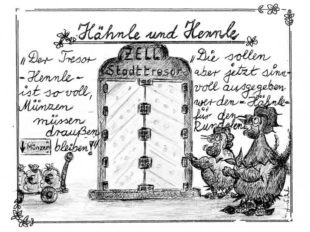 Hähnle und Hennle
„Der Tresor
-Hennle-
ist so voll,
Münzen
müssen
draußen
bleiben!"
ZELL
Stadttresor
„Die sollen
aber jetzt sinn-
voll ausgegeben
werden - Hähnle-
für den
Münzen